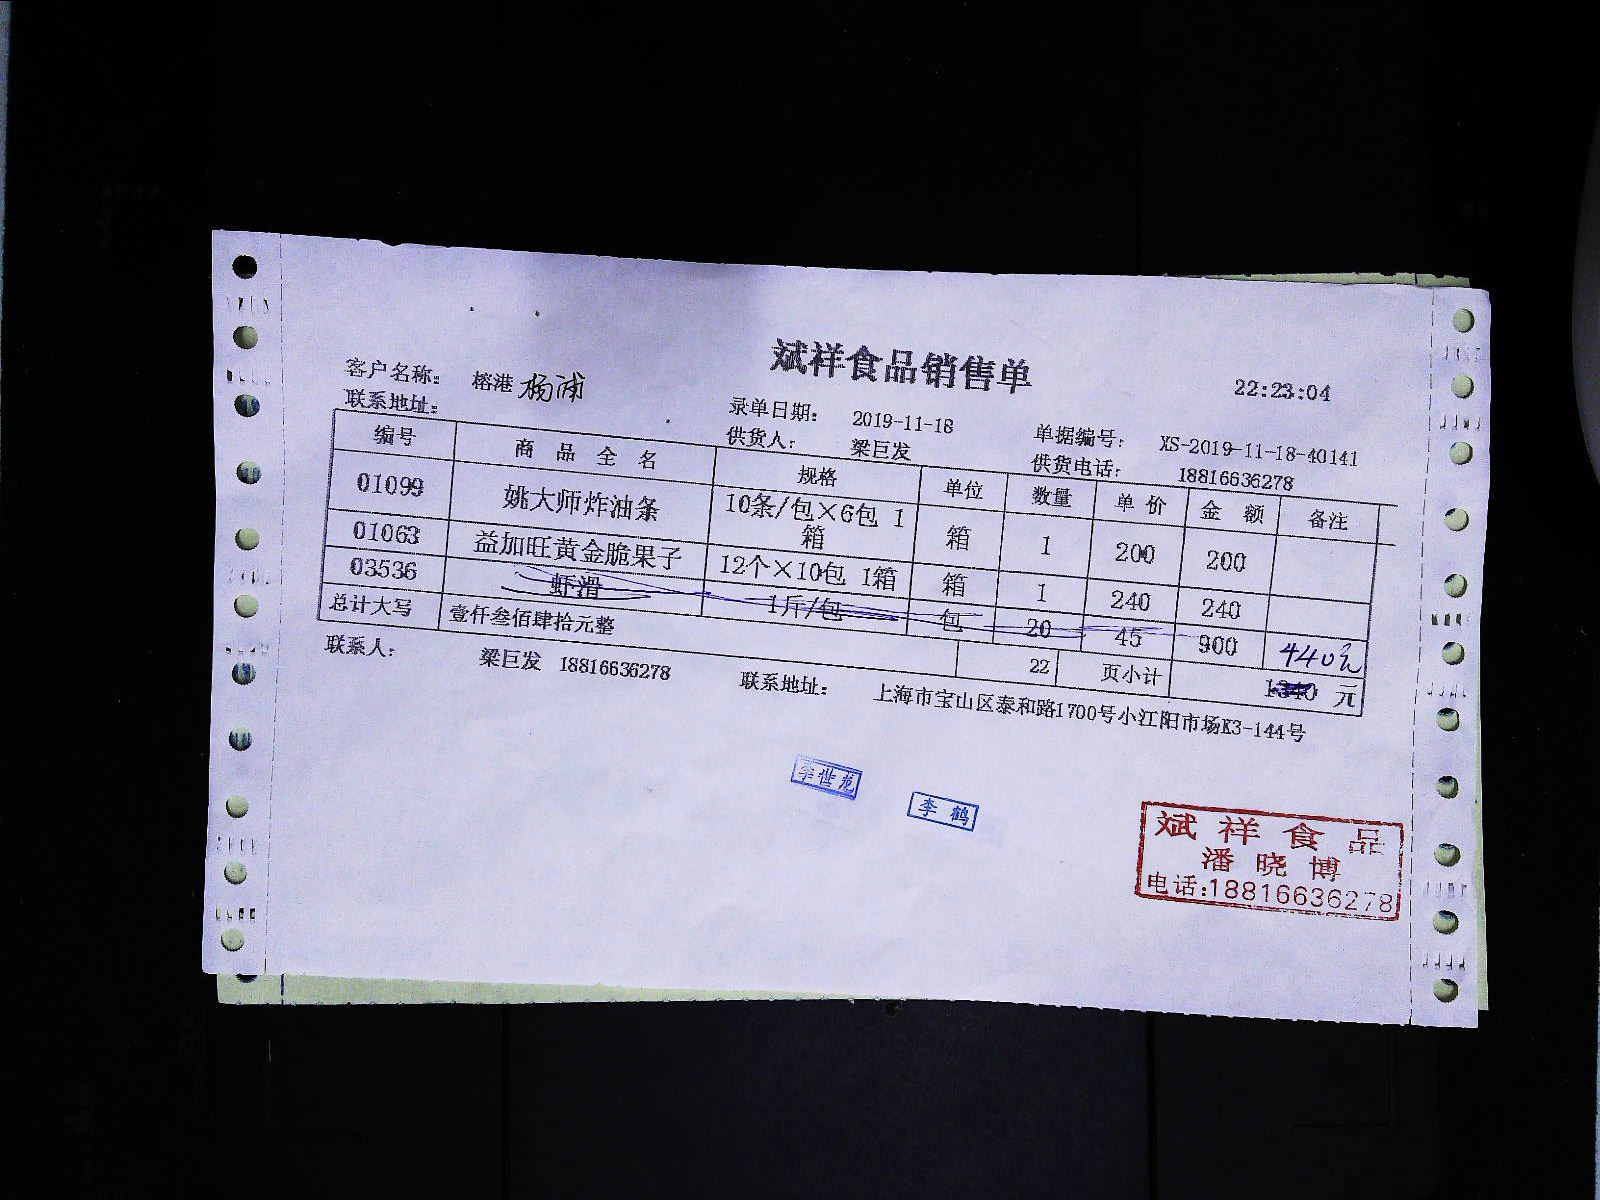 斌祥食品销售单
22:23:04
客户名称： 榕港 杨浦
录单日期： 2019-11-18 单据编号： XS-2019-11-18-40141
联系地址：
供货人： 梁巨发 供货电话： 18816636278
编号 商品全名 规格 单位 数量 单价 金额 备注
01099 姚大师炸油条 10条/包×6包 1箱 箱 1 200 200
01063 益加旺黄金脆果子 12个×10包 1箱 箱 1 240 240
03536 虾滑 1斤/包 包 20 45 900 440元
总计大写 壹仟叁佰肆拾元整 22 页小计 1340 元
联系人： 梁巨发 18816636278 联系地址： 上海市宝山区泰和路1700号小江阳市场K3-144号
李世苑
李鹤
斌祥食品
潘晓博
电话:18816636278